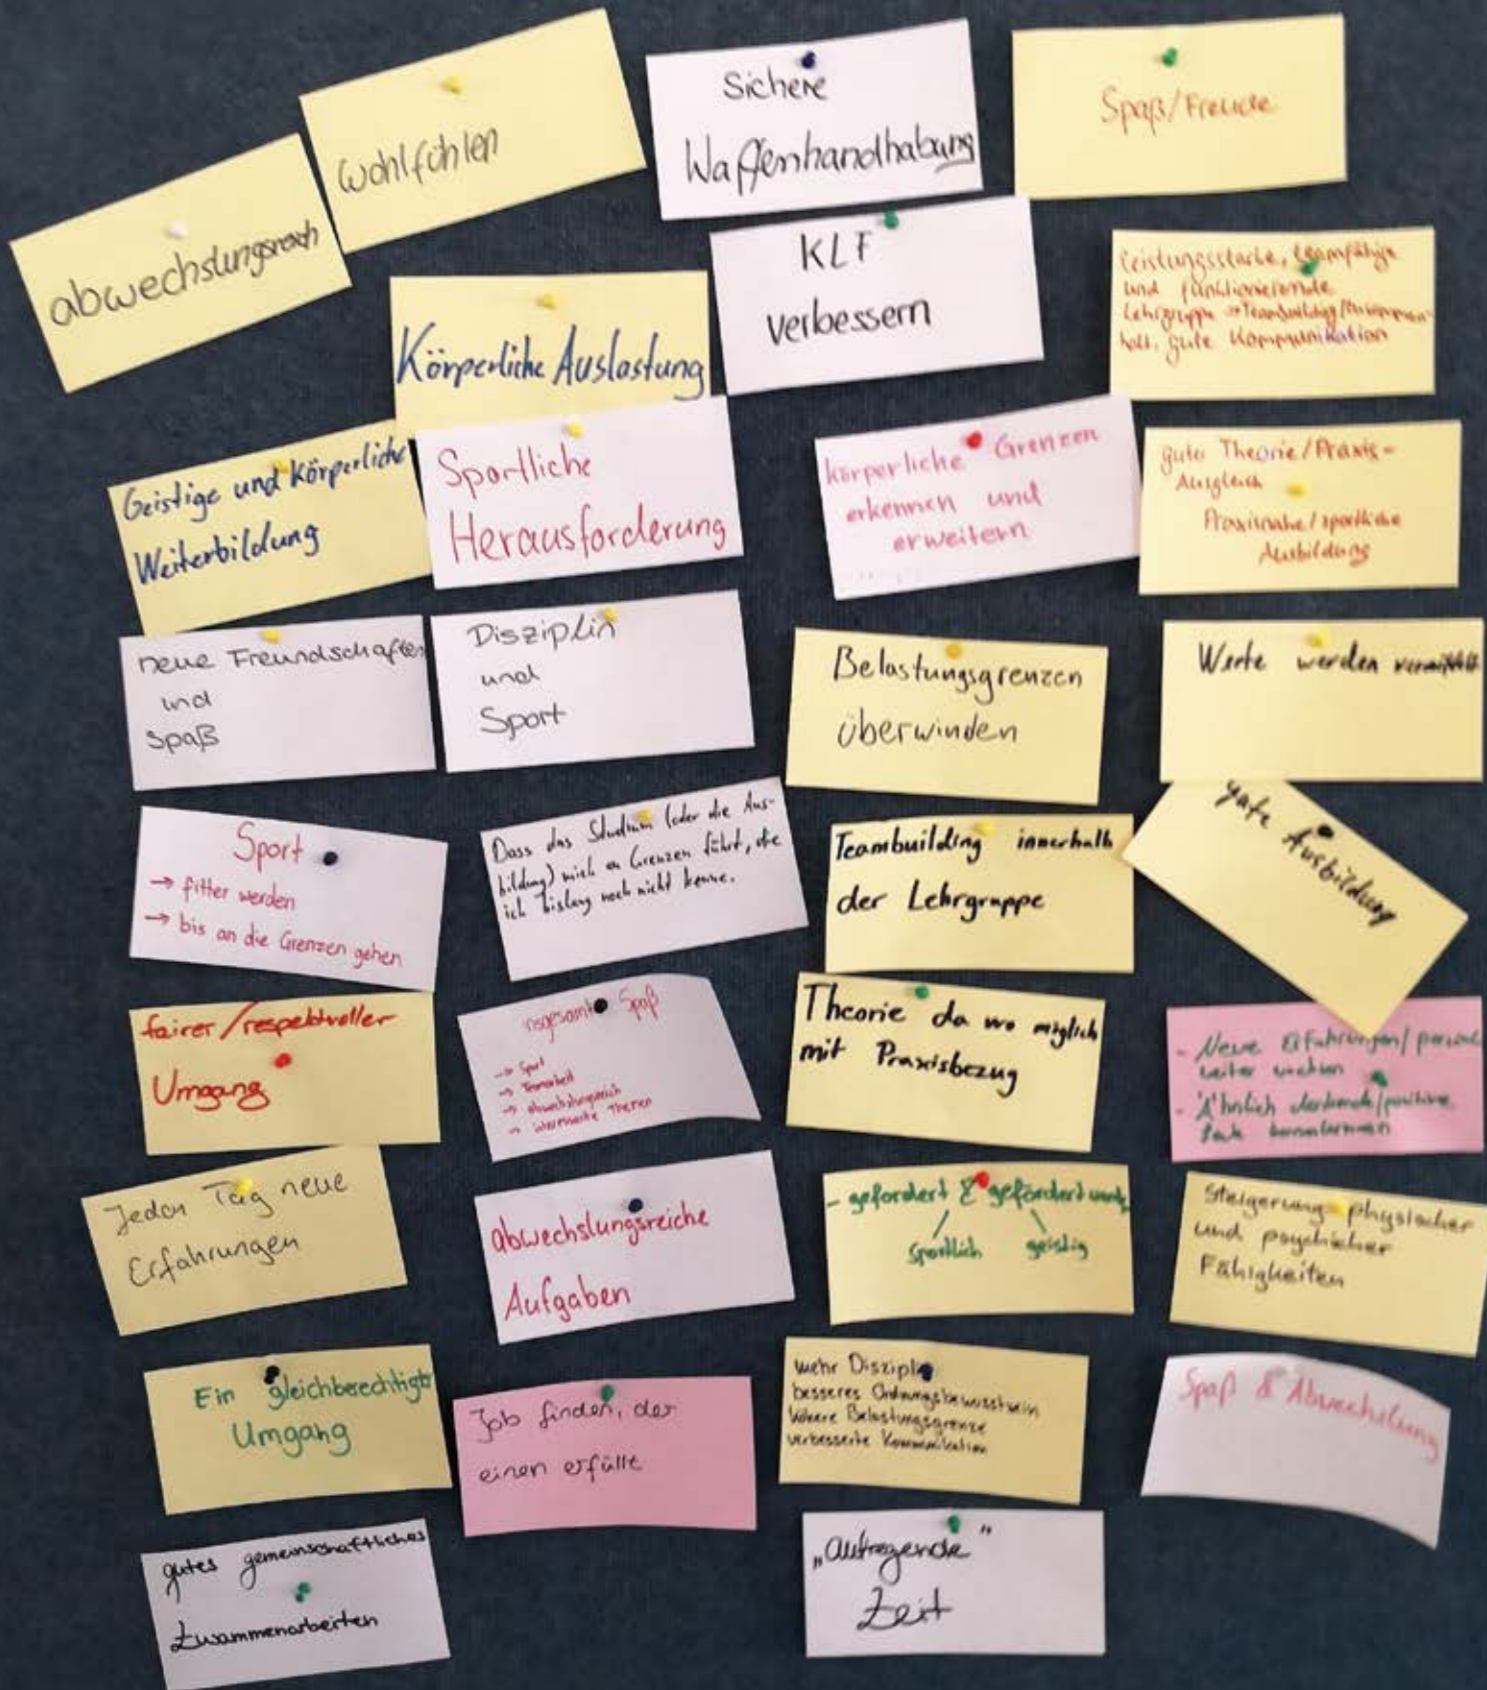 abwechslungsreich
Wohlfühlen
Sichere
Waffenhandhabung
Spaß/Freude
KLF
verbessern
leistungsstarke, teamfähige
und funktionierende
Lehrgruppe → Teambuilding/Zusammen-
halt, gute Kommunikation
Körperliche Auslastung
Geistige und Körperliche
Weiterbildung
Sportliche
Herausforderung
körperliche Grenzen
erkennen und
erweitern
guter Theorie/Praxis-
Ausgleich
Praxisnahe/sportliche
Ausbildung
neue Freundschaften
und
Spaß
Disziplin
und
Sport
Belastungsgrenzen
überwinden
Werte werden vermittelt
Sport
→ fitter werden
→ bis an die Grenzen gehen
Dass das Studium (oder die Aus-
bildung) mich an Grenzen führt, die
ich bislang noch nicht kenne.
Teambuilding innerhalb
der Lehrgruppe
gute Ausbildung
fairer/respektvoller
Umgang
insgesamt Spaß
→ Sport
→ Teamarbeit
→ abwechslungsreich
→ interessante Themen
Theorie da wo möglich
mit Praxisbezug
- Neue Erfahrungen/
- Ähnlich denkende/positive
kennenlernen
Jeden Tag neue
Erfahrungen
abwechslungsreiche
Aufgaben
- gefordert & gefördert
sportlich geistig
Steigerung physischer
und psychischer
Fähigkeiten
Ein gleichberechtigter
Umgang
Job finden, der
einen erfüllt
mehr Disziplin
besseres Ordnungsbewusstsein
höhere Belastungsgrenze
verbesserte Kommunikation
Spaß & Abwechslung
gutes gemeinschaftliches
Zusammenarbeiten
„aufregende"
Zeit